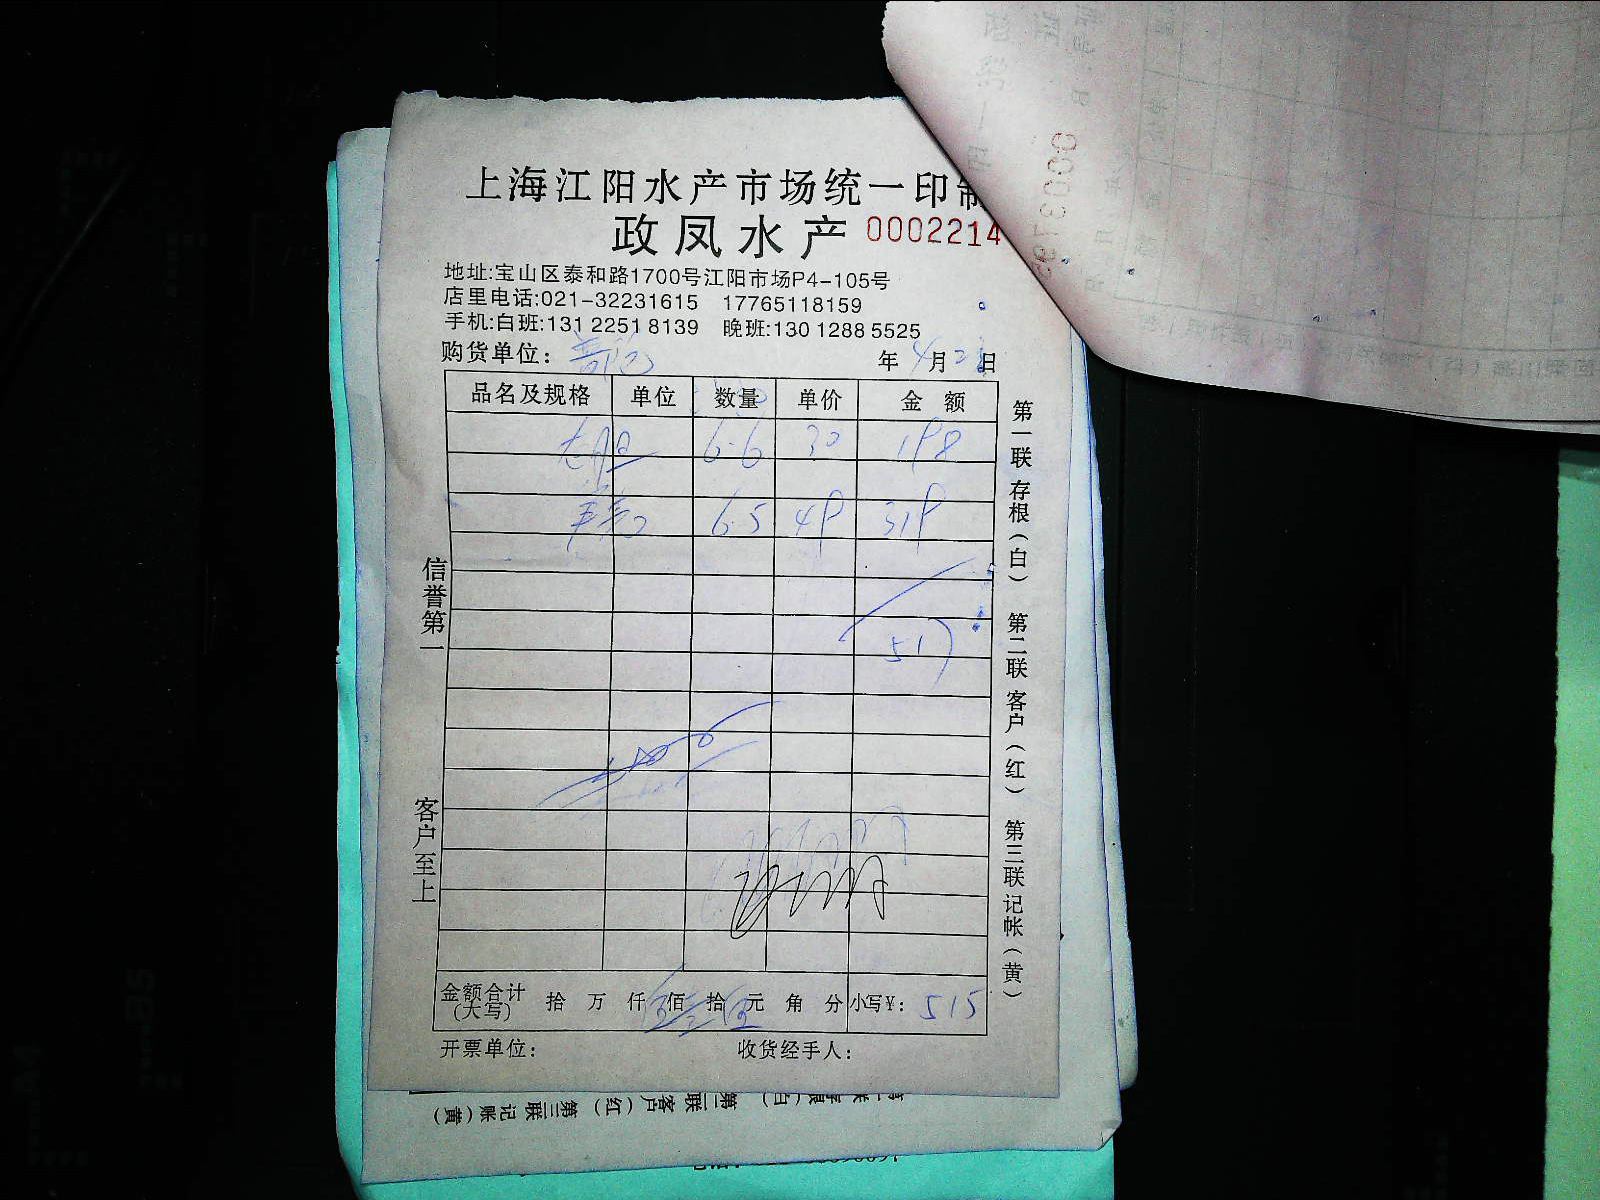 上海江阳水产市场统一印制
政凤水产 0002214
地址:宝山区泰和路1700号江阳市场P4-105号
店里电话:021-32231615 17765118159
手机:白班:131 2251 8139 晚班:130 1288 5525
购货单位:
年4月2日
品名及规格 单位 数量 单价 金额
6.6 30 198
6.5 49 319
517
金额合计(大写) 拾 万 仟 伍佰 拾 伍元 角 分 小写¥: 515
开票单位: 收货经手人:
信誉第一
客户至上
第一联存根(白) 第二联客户(红) 第三联记帐(黄)
第二联客户(红) 第三联记账(黄)